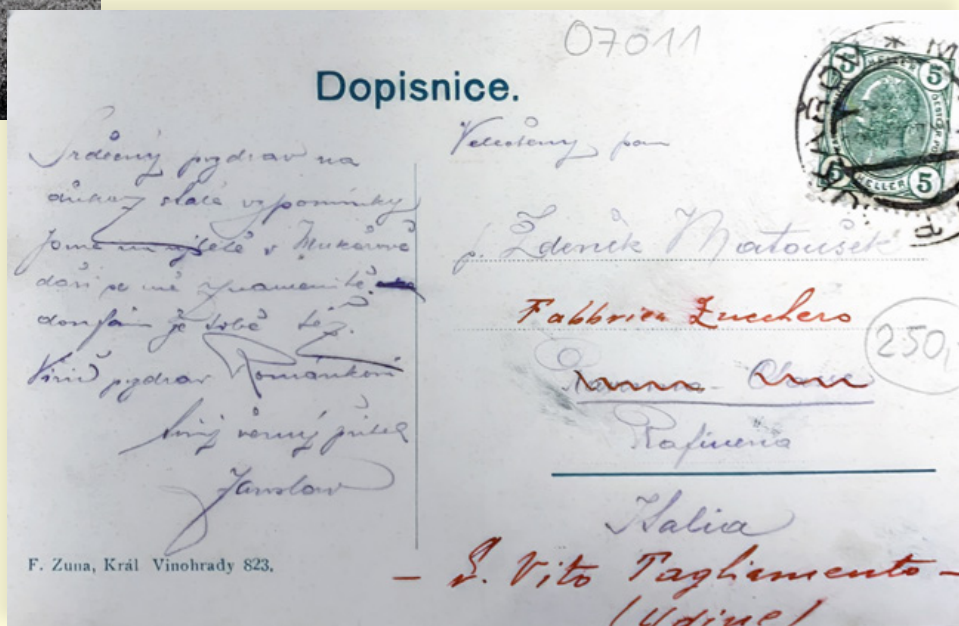 07011
Dopisnice.
Srdečný pozdrav na
důkaz stálé vzpomínky
Jsme na výletě v Mukařově
daří se mě znamenitě
doufám že tobě též.
Vyřiď pozdrav Románkovi
tvůj věrný přítel
Jaroslav
F. Zuna, Král Vinohrady 823.
5 HELLER 5
5 HELLER 5
Velectěný pan
p. Zdeněk Matoušek
Fabbrica Zucchero
250,
Rafineria
Italia
- S. Vito Tagliamento -
(Udine)